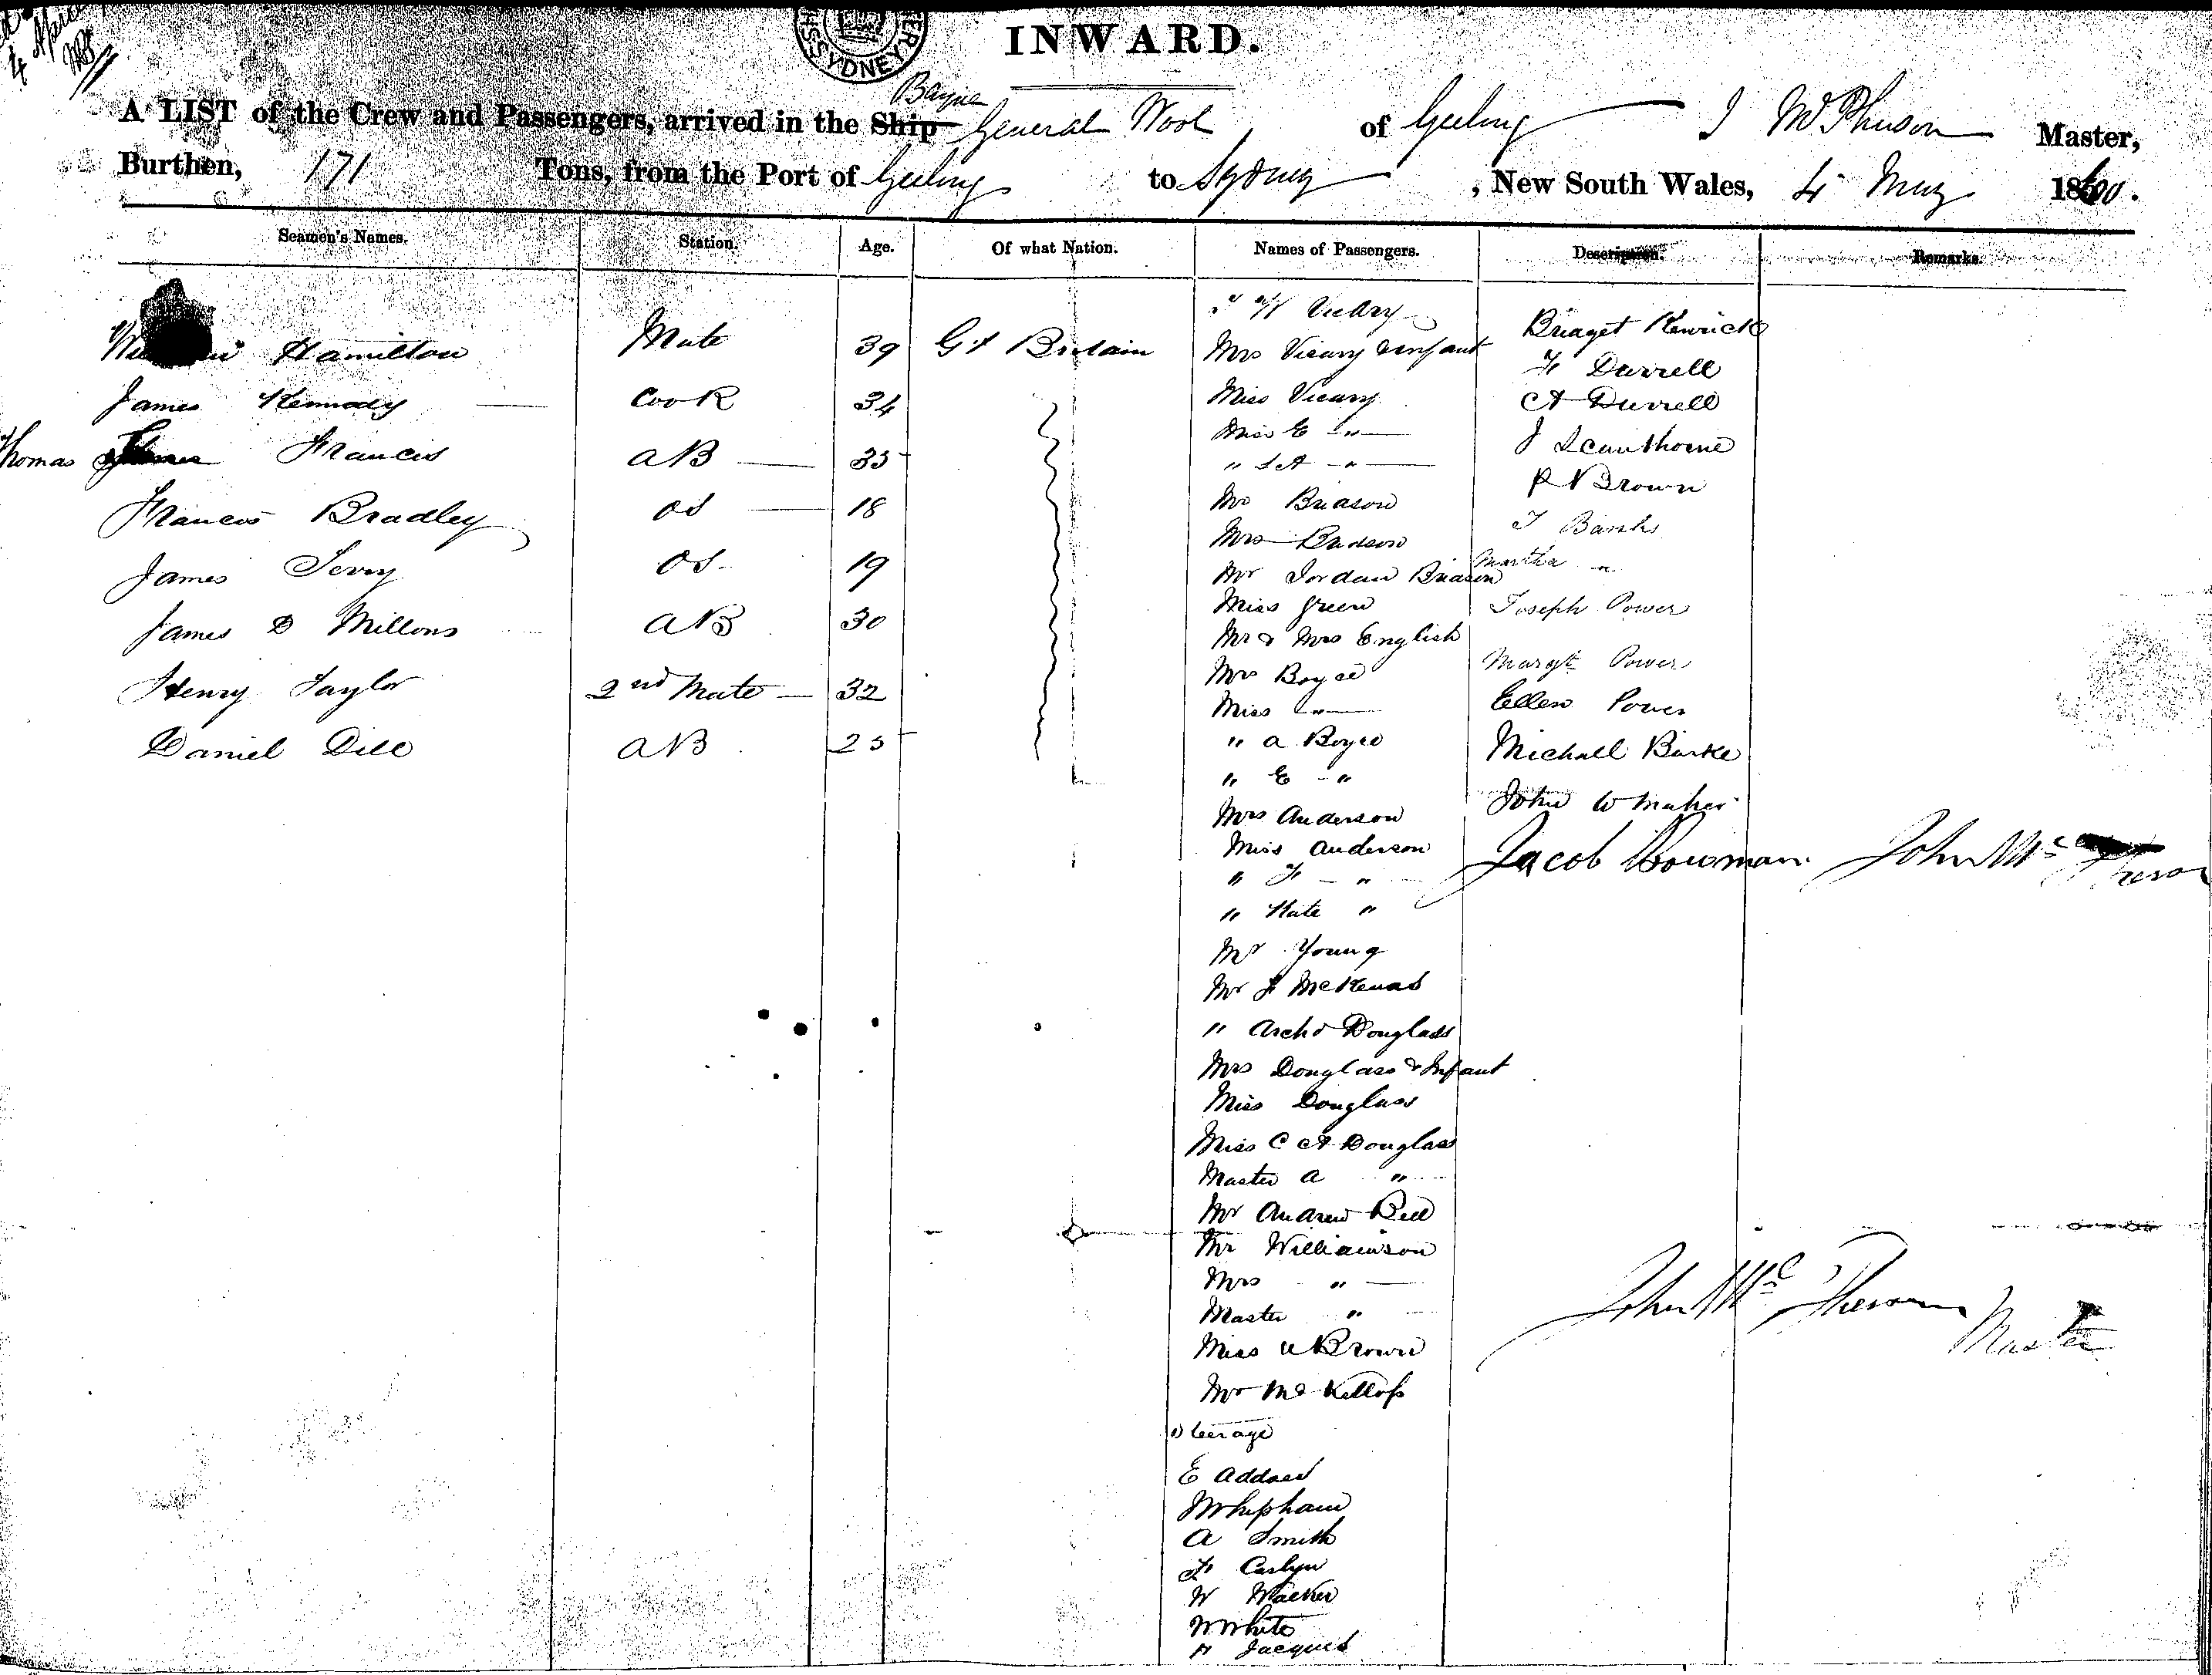 INWARD.
A LIST of the Crew and Passengers, arrived in the Ship Barque General Wool of Geelong J McPherson Master,
Burthen, 171 Tons, from the Port of Geelong to Sydney, New South Wales, 4 May 1860.
Seamen's Names. Station. Age. Of what Nation. Names of Passengers. Description. Remarks.
Hamilton Mate 39 Gt Britain
James Kennedy Cook 34
Thomas Francis AB 35
Francis Bradley OS 18
James OS 19
James D Millons AB 30
Henry Taylor 2nd Mate 32
Daniel Dill AB 25
Vicary
Mrs Vicary & infant
Miss Vicary
Miss E "
" S A "
Mr Briason
Mrs Briason
Mr Jordan Briason
Miss Green
Mr & Mrs English
Mrs Boyce
Miss "
" A Boyce
" E "
Mrs Anderson
Miss Anderson
" F "
" Kate "
Mr Young
Mr J
" Archd Douglass
Mrs Douglass & Infant
Miss Douglass
Miss C A Douglass
Master A "
Mr Andrew Bell
Mr Williamson
Mrs "
Master "
Miss Brown
Mr McKellop
Steerage
E
Whipham
A Smith
F
W
White
H Jacques
Bridget Kenrick
F Durrell
A Durrell
J Scawthorne
R Brown
T Banks
Martha "
Joseph Power
Margt Power
Ellen Power
Michall Burke
John W Maher
Jacob Bowman
John Mc Pherson
John Mc Pherson
Master